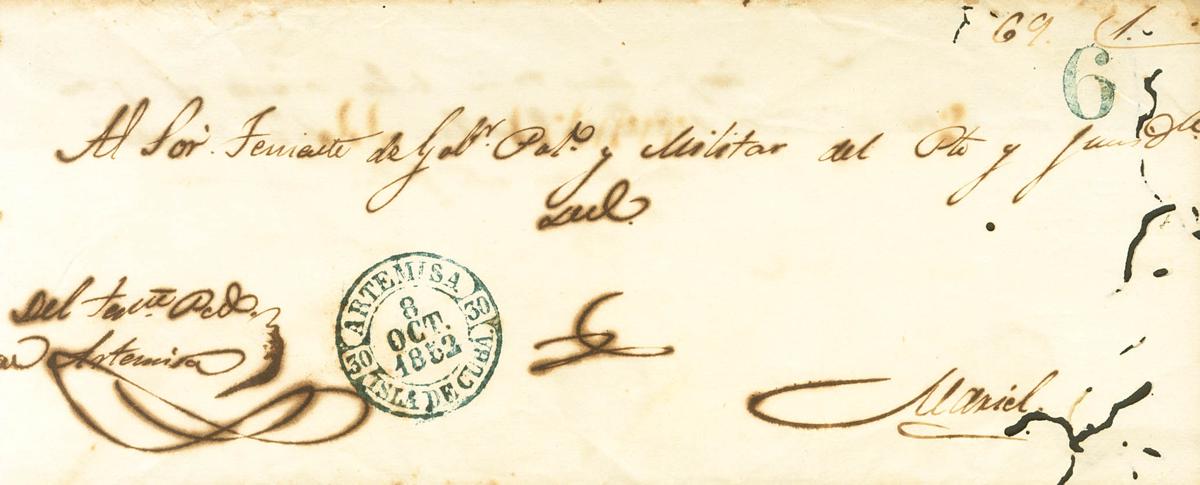 69. 1.
6
Al Sor. Teniente de Gobr. Polo. y Militar del Pto y
Del Tente. Pedo.
Artemisa
ARTEMISA
8
OCT.
1852
30 30
ISLA DE CUBA
Mariel.